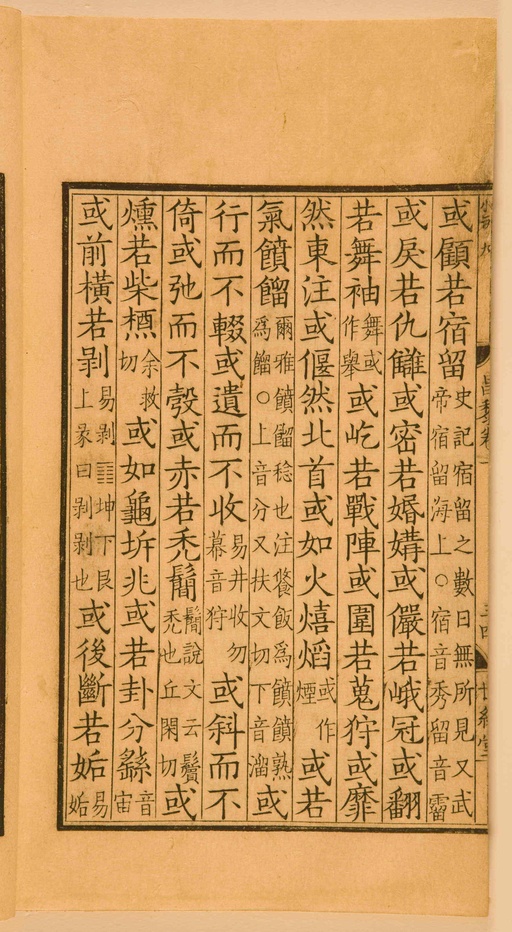 或顧若宿留史記宿留之數日無所見又武帝宿留海上○宿音秀留音霤
或戾若仇讎或密若婚媾或儼若峨冠或翻
若舞袖舞或作舉或屹若戰陣或圍若蒐狩或靡
然東注或偃然北首或如火熺熖或作煙或若
氣饙餾爾雅饙餾稔也注餐飯為饙饙熟為餾○上音分又扶文切下音溜或
行而不輟或遺而不收易井收勿幕音狩或斜而不
倚或弛而不彀或赤若禿鬜鬜說文云鬢禿也丘閑切或
燻若柴槱余救切或如龜坼兆或若卦分繇音宙
或前橫若剝易剝䷖坤下艮上彖曰剝剝也或後斷若姤易姤